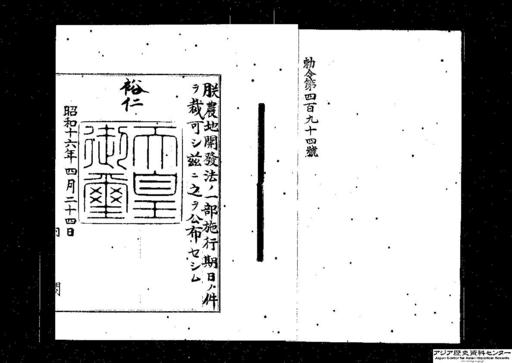 勅令第四百九十四號
朕農地開發法ノ一部施行期日ノ件
ヲ裁可シ茲ニ之ヲ公布セシム
裕仁
天皇
御璽
昭和十六年四月二十四日
アジア歴史資料センター
Japan Center for Asian Historical Records